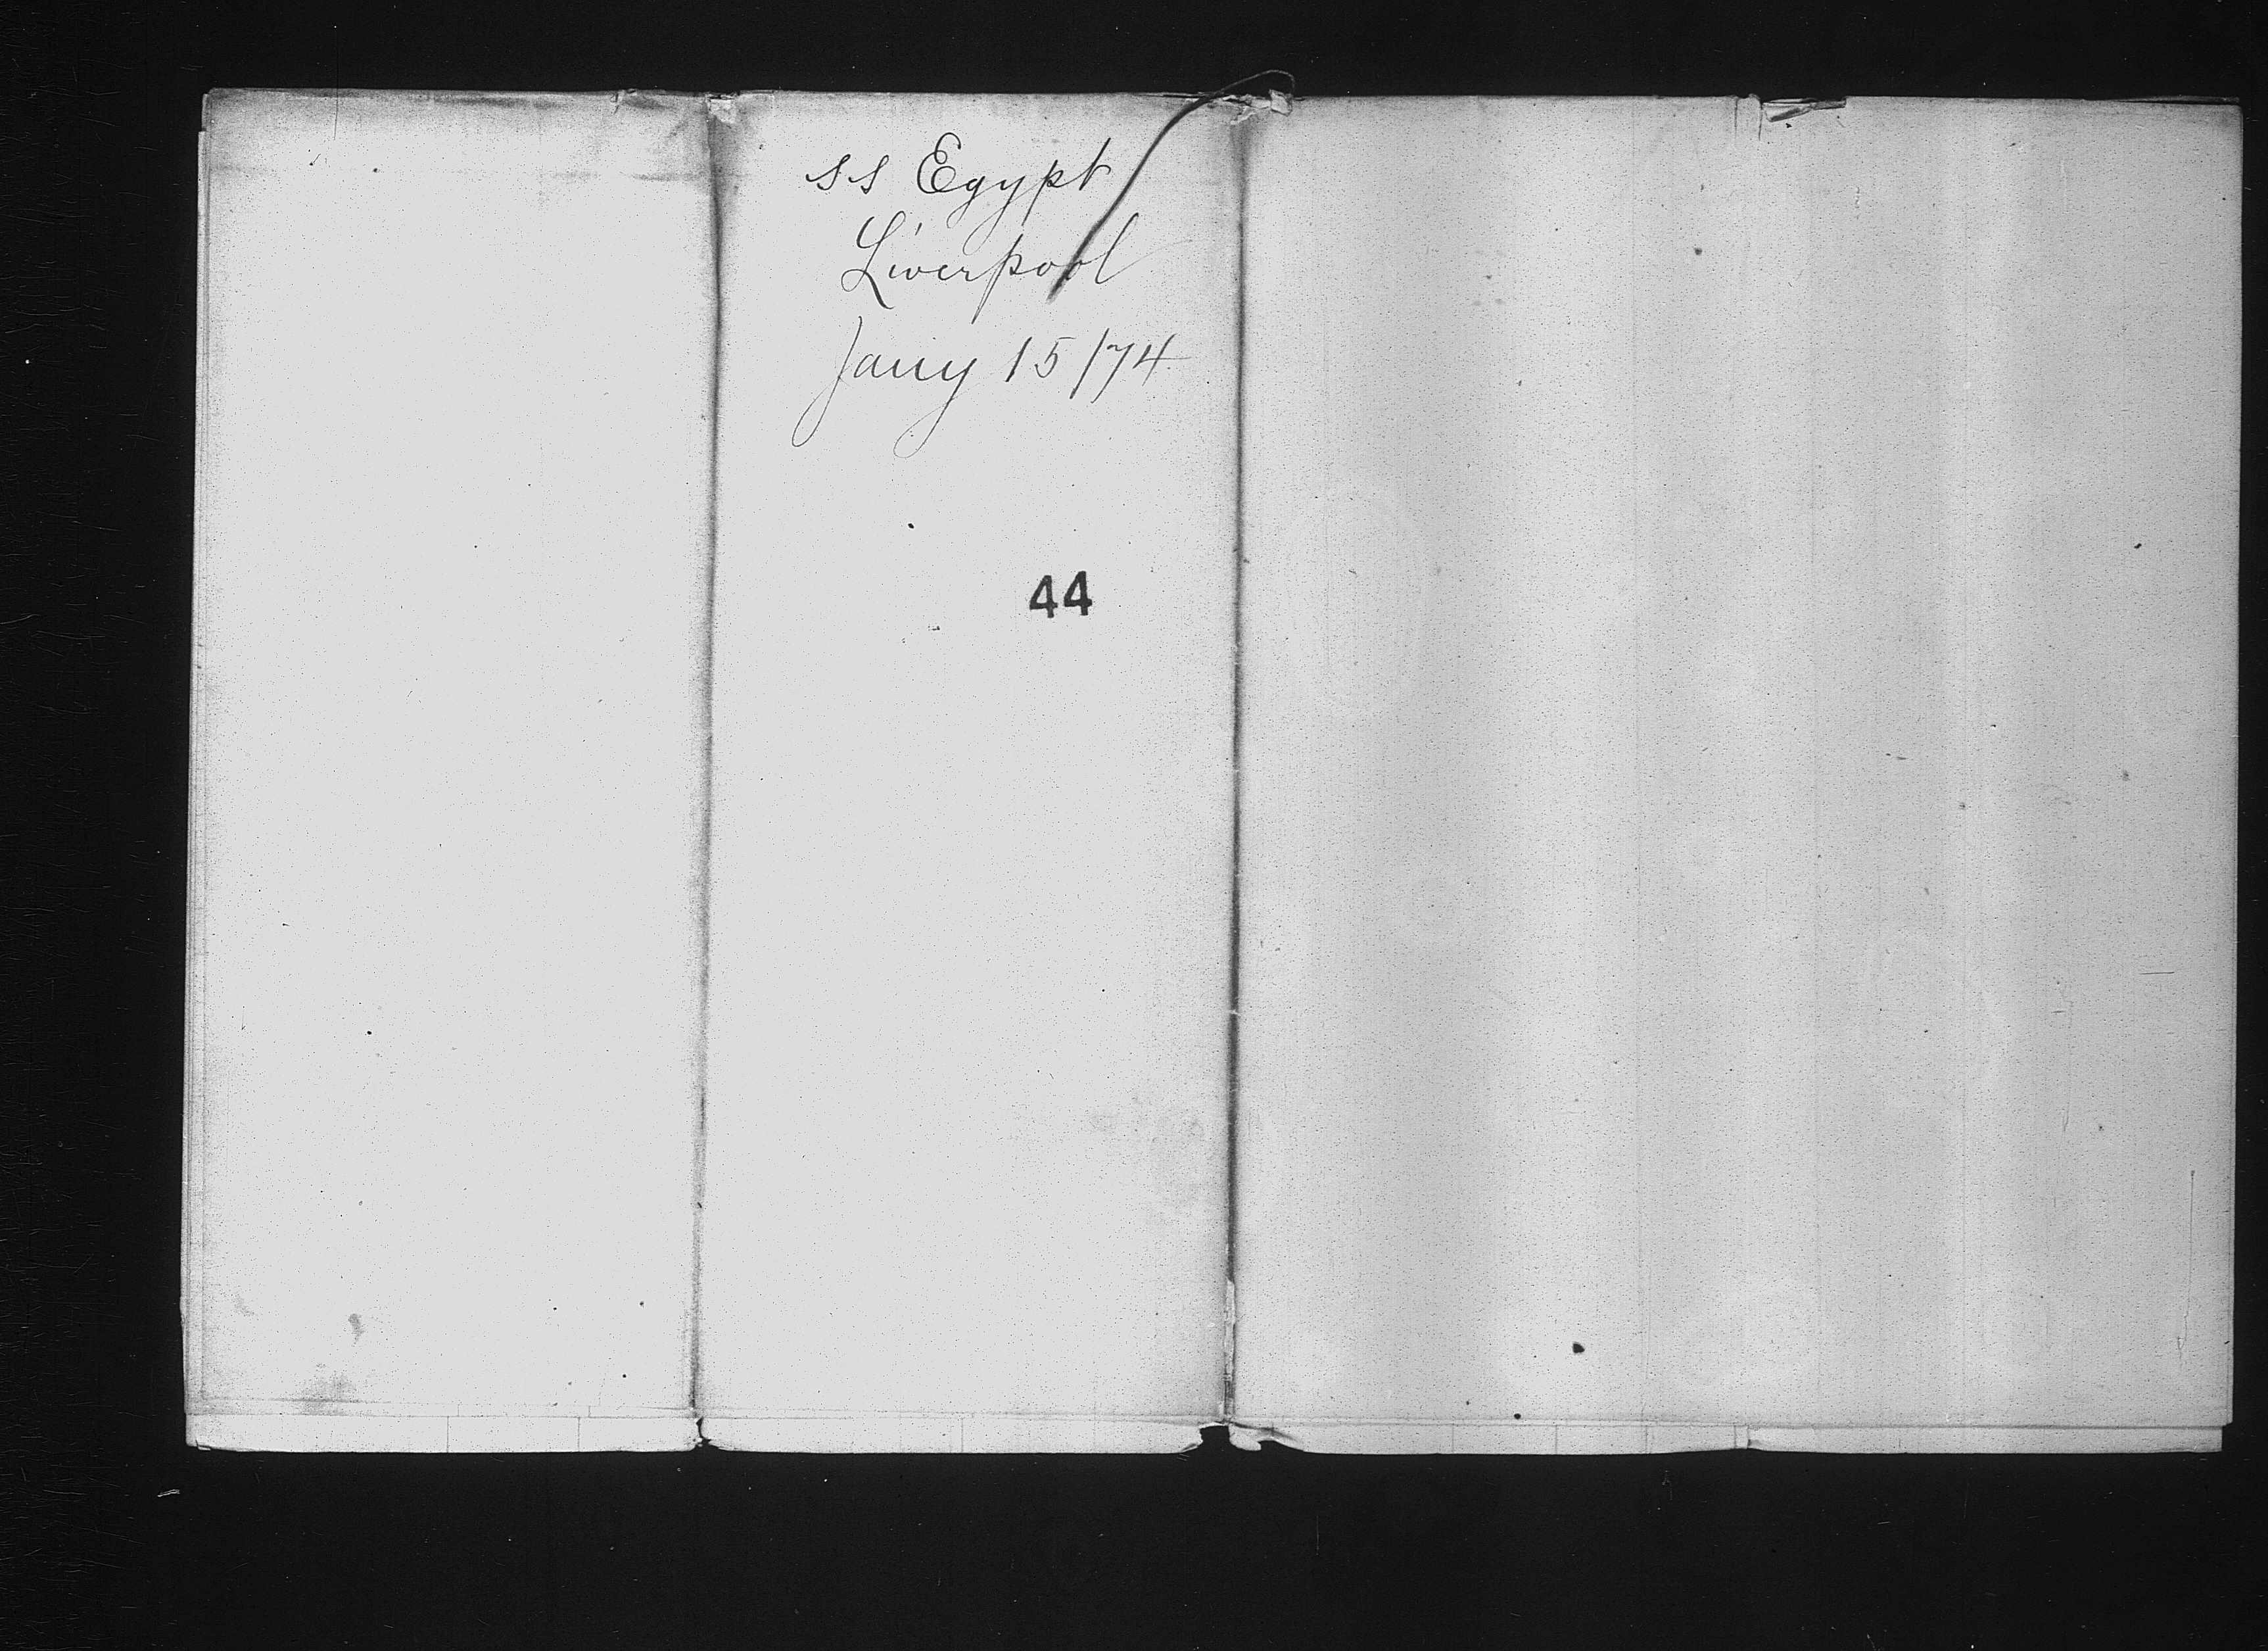 ss Egypt
Liverpool
Jany 15/74
44